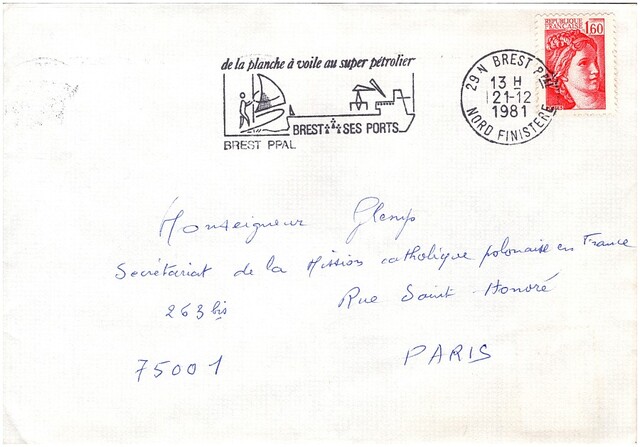 de la planche à voile au super pétrolier
BREST SES PORTS
BREST PPAL
29 N BREST PPAL
13 H
21-12
1981
NORD FINISTERE
REPUBLIQUE
FRANÇAISE
1,60
Monseigneur Glemp
Secrétariat de la Mission catholique polonaise en France
263 bis Rue Saint-Honoré
75001 PARIS